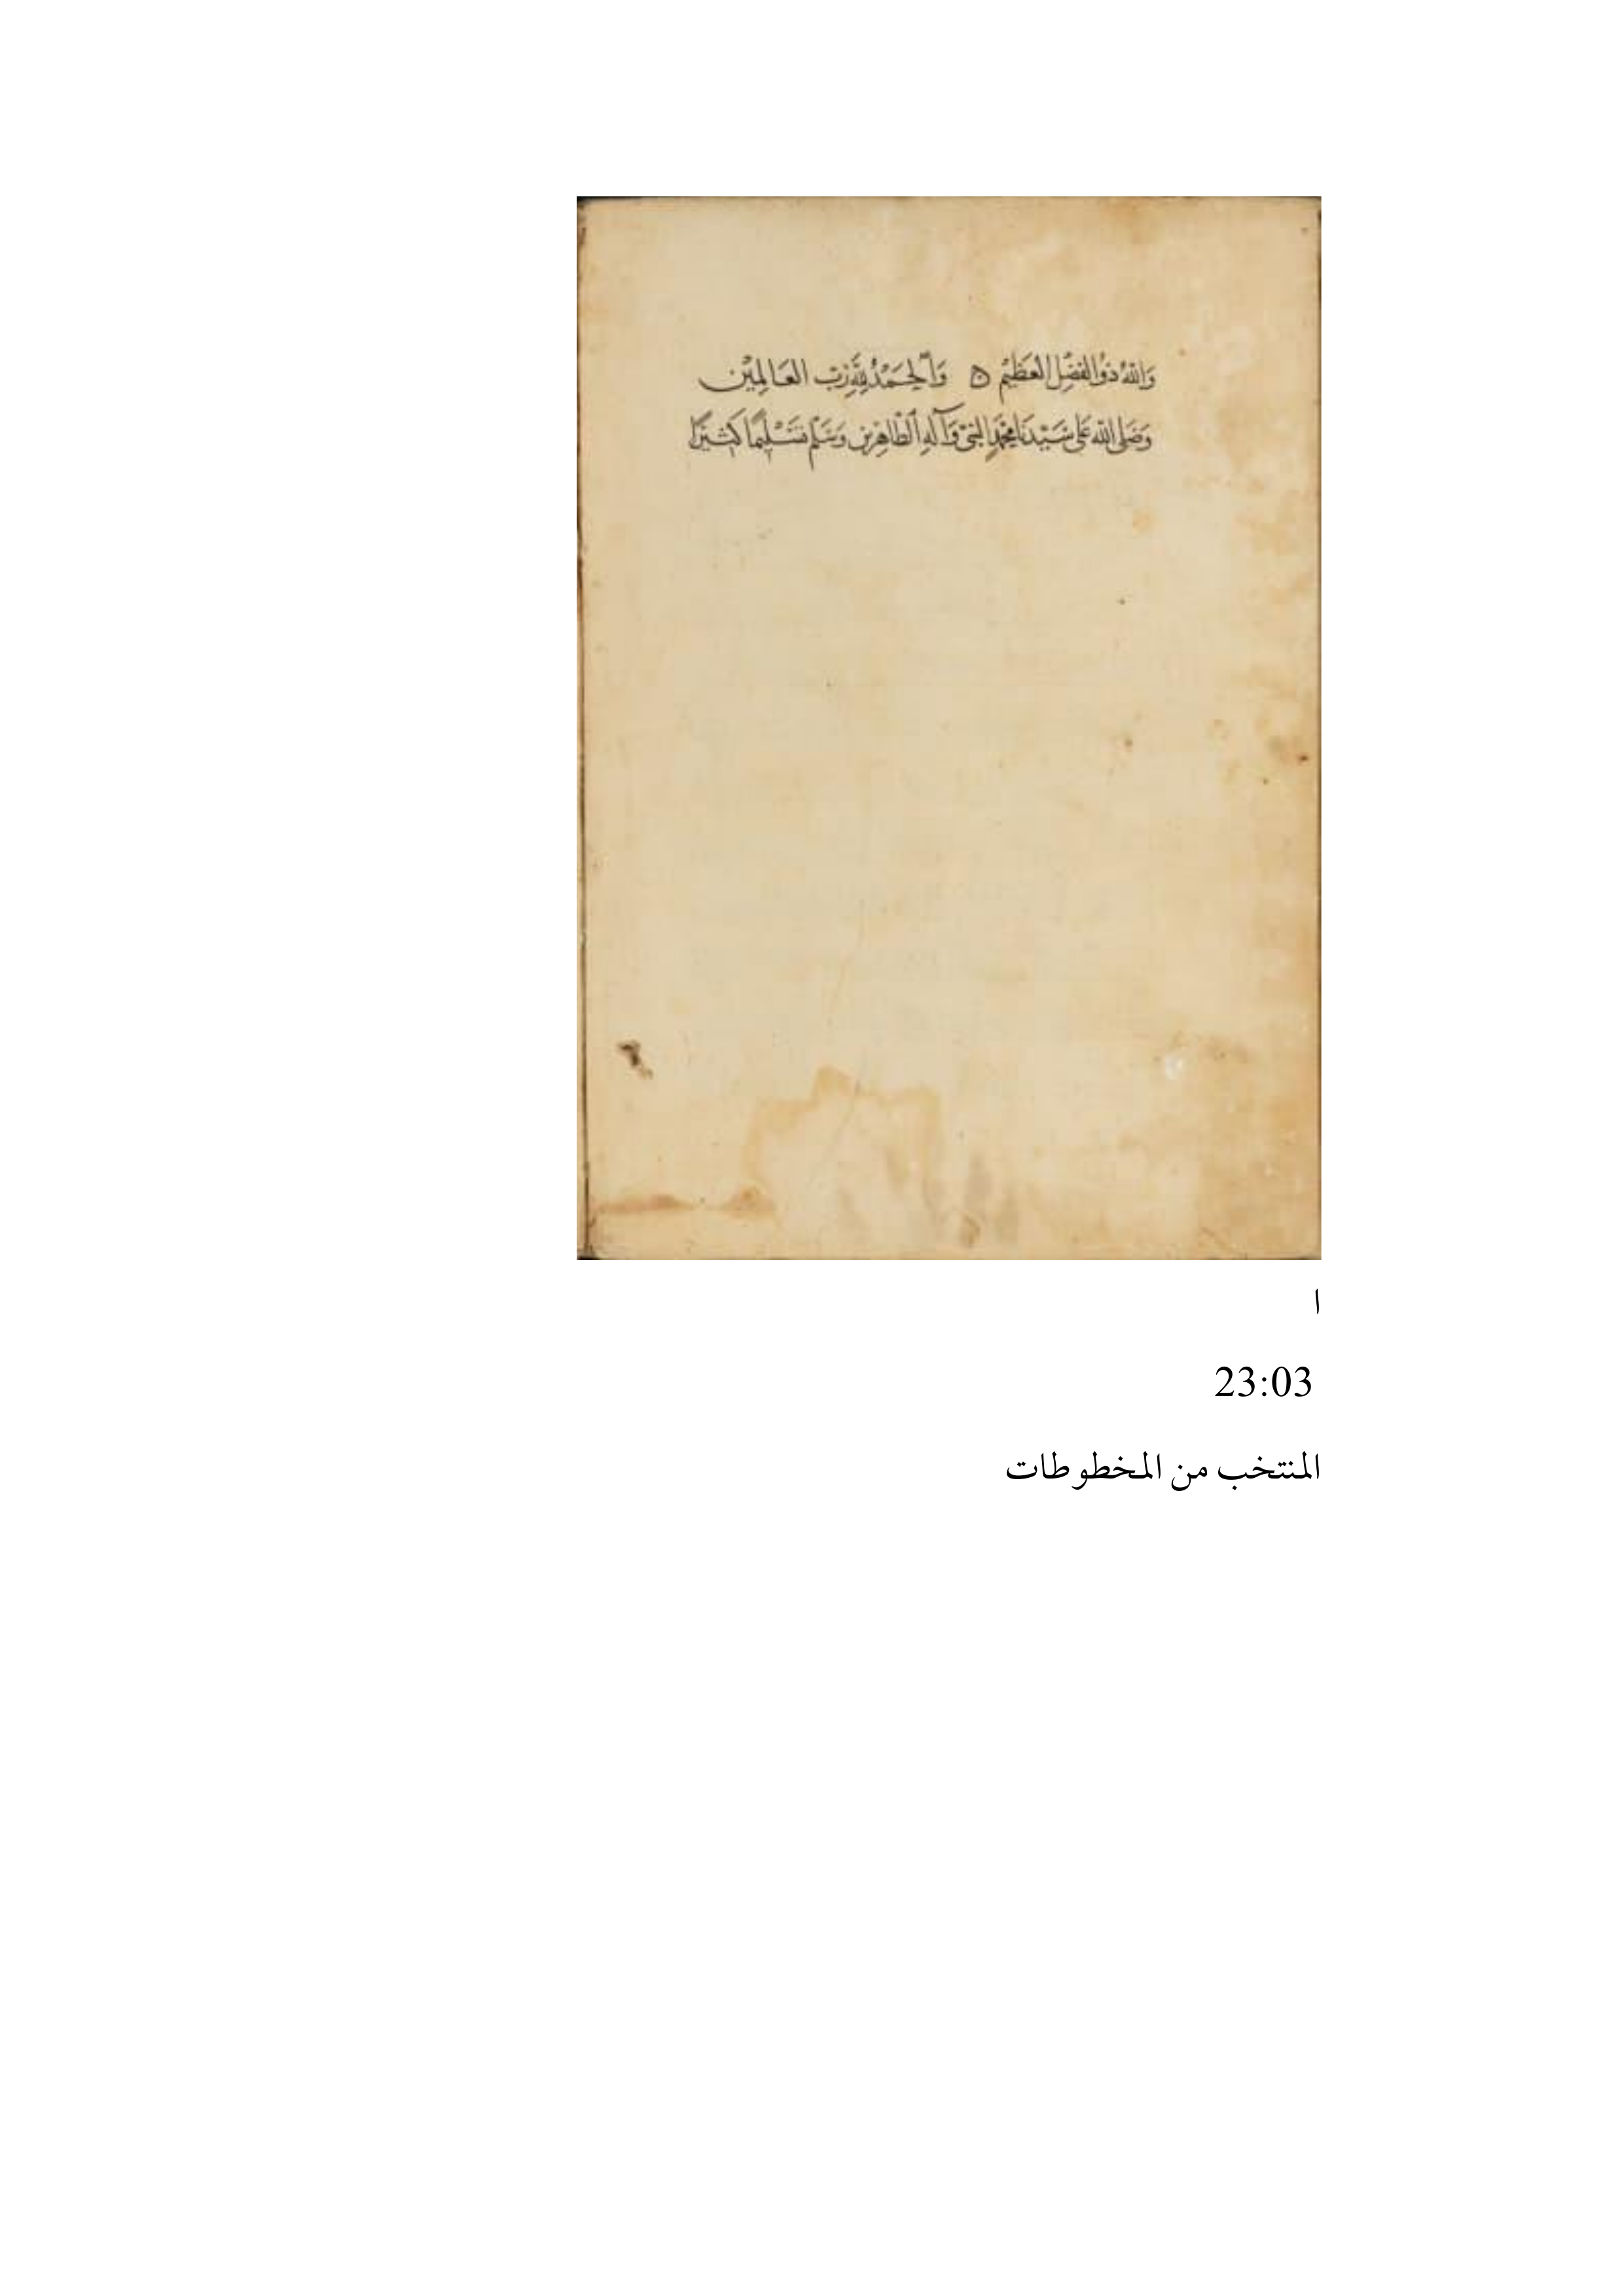 وَاللهُ ذُو الفَضْلِ العَظِيمْ ۝ وَالْحَمْدُ لِلَّهِ رَبِّ العَالمِيْن
وَصَلى الله عَلى سَيّدنَا محَمَّدٍ النبيّ وَآلهِ الطَاهِرين وَسَلّم تسْلِيمًا كَثيرًا
ا
23:03
المنتخب من المخطوطات